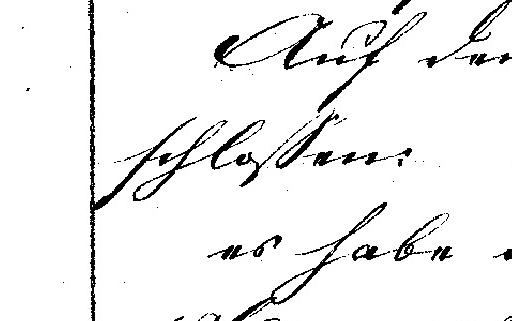 Auf den
schlossen:
es habe